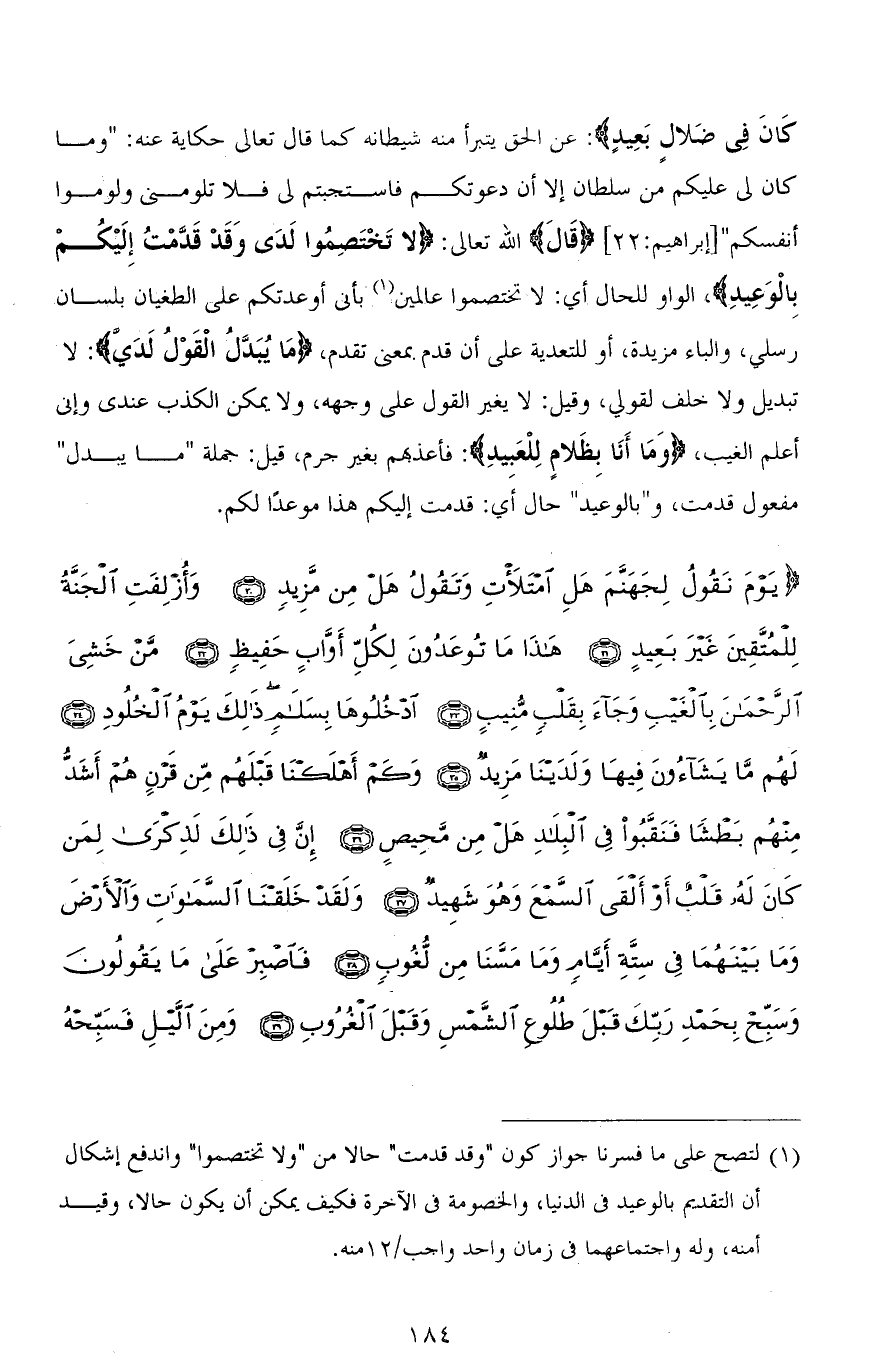 كَانَ فِى ضَلالٍ بَعِيدٍ﴾: عن الحق يتبرأ منه شيطانه كما قال تعالى حكاية عنه: "وما
كان لى عليكم من سلطان إلا أن دعوتكم فاستجبتم لى فلا تلومنى ولوموا
أنفسكم"[إبراهيم:٢٢] ﴿قَالَ﴾ الله تعالى: ﴿لا تَخْتَصِمُوا لَدَى وَقَدْ قَدَّمْتُ إِلَيْكُمْ
بِالْوَعِيدِ﴾، الواو للحال أي: لا تختصموا عالمين(١) بأنى أوعدتكم على الطغيان بلسان
رسلي، والباء مزيدة، أو للتعدية على أن قدم بمعنى تقدم، ﴿مَا يُبَدَّلُ الْقَوْلُ لَدَيَّ﴾: لا
تبديل ولا خلف لقولي، وقيل: لا يغير القول على وجهه، ولا يمكن الكذب عندى وإنى
أعلم الغيب، ﴿وَمَا أَنَا بِظَلامٍ لِلْعَبِيدِ﴾: فأعذبهم بغير جرم، قيل: جملة "ما يبدل"
مفعول قدمت، و"بالوعيد" حال أي: قدمت إليكم هذا موعدًا لكم.
﴿يَوْمَ نَقُولُ لِجَهَنَّمَ هَلِ ٱمْتَلَأْتِ وَتَقُولُ هَلْ مِن مَّزِيدٍ ٣٠ وَأُزْلِفَتِ ٱلْجَنَّةُ
لِلْمُتَّقِينَ غَيْرَ بَعِيدٍ ٣١ هَٰذَا مَا تُوعَدُونَ لِكُلِّ أَوَّابٍ حَفِيظٍ ٣٢ مَّنْ خَشِىَ
ٱلرَّحْمَٰنَ بِٱلْغَيْبِ وَجَآءَ بِقَلْبٍ مُّنِيبٍ ٣٣ ٱدْخُلُوهَا بِسَلَٰمٍ ۖ ذَٰلِكَ يَوْمُ ٱلْخُلُودِ ٣٤
لَهُم مَّا يَشَآءُونَ فِيهَا وَلَدَيْنَا مَزِيدٌ ٣٥ وَكَمْ أَهْلَكْنَا قَبْلَهُم مِّن قَرْنٍ هُمْ أَشَدُّ
مِنْهُم بَطْشًا فَنَقَّبُوا۟ فِى ٱلْبِلَٰدِ هَلْ مِن مَّحِيصٍ ٣٦ إِنَّ فِى ذَٰلِكَ لَذِكْرَىٰ لِمَن
كَانَ لَهُۥ قَلْبٌ أَوْ أَلْقَى ٱلسَّمْعَ وَهُوَ شَهِيدٌ ٣٧ وَلَقَدْ خَلَقْنَا ٱلسَّمَٰوَٰتِ وَٱلْأَرْضَ
وَمَا بَيْنَهُمَا فِى سِتَّةِ أَيَّامٍ وَمَا مَسَّنَا مِن لُّغُوبٍ ٣٨ فَٱصْبِرْ عَلَىٰ مَا يَقُولُونَ
وَسَبِّحْ بِحَمْدِ رَبِّكَ قَبْلَ طُلُوعِ ٱلشَّمْسِ وَقَبْلَ ٱلْغُرُوبِ ٣٩ وَمِنَ ٱلَّيْلِ فَسَبِّحْهُ
(١) لتصح على ما فسرنا جواز كون "وقد قدمت" حالا من "ولا تختصموا" واندفع إشكال
أن التقديم بالوعيد فى الدنيا، والخصومة فى الآخرة فكيف يمكن أن يكون حالا، وقيد
أمنه، وله واجتماعهما فى زمان واحد واجب/١٢منه.
١٨٤